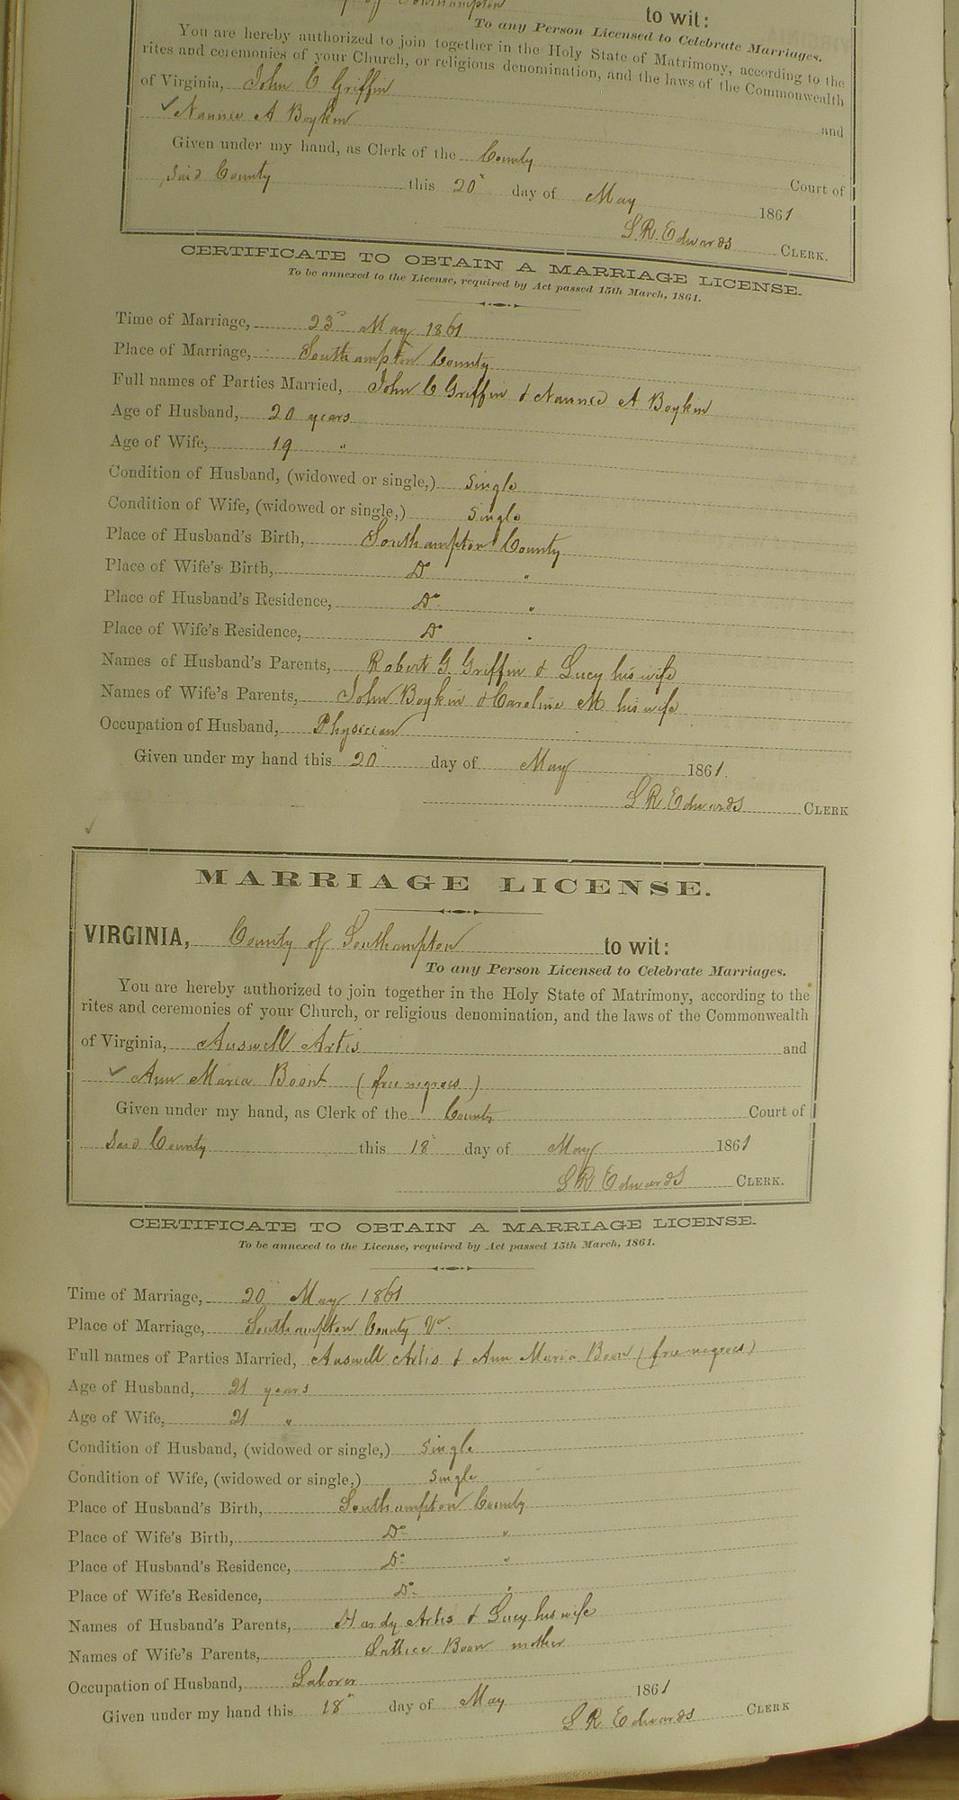 to wit:
To any Person Licensed to Celebrate Marriages.
You are hereby authorized to join together in the Holy State of Matrimony, according to the
rites and ceremonies of your Church, or religious denomination, and the laws of the Commonwealth
of Virginia, John C Griffin
and
Nannie A Boykin
Given under my hand, as Clerk of the County
Court of
said County this 20" day of May 1861
S. R. Edwards CLERK.
CERTIFICATE TO OBTAIN A MARRIAGE LICENSE.
To be annexed to the License, required by Act passed 15th March, 1861.
Time of Marriage, 23" May 1861
Place of Marriage, Southampton County
Full names of Parties Married, John C Griffin & Nannie A Boykin
Age of Husband, 20 years
Age of Wife, 19 "
Condition of Husband, (widowed or single,) single
Condition of Wife, (widowed or single,) single
Place of Husband's Birth, Southampton County
Place of Wife's Birth, Do "
Place of Husband's Residence, Do "
Place of Wife's Residence, Do "
Names of Husband's Parents, Robert G. Griffin & Lucy his wife
Names of Wife's Parents, John Boykin & Caroline M his wife
Occupation of Husband, Physician
Given under my hand this 20 day of May 1861.
S R. Edwards CLERK
MARRIAGE LICENSE.
VIRGINIA, County of Southampton to wit:
To any Person Licensed to Celebrate Marriages.
You are hereby authorized to join together in the Holy State of Matrimony, according to the
rites and ceremonies of your Church, or religious denomination, and the laws of the Commonwealth
of Virginia, Auswell Artis and
Ann Maria Boon (free negroes)
Given under my hand, as Clerk of the County Court of
said County this 18" day of May 1861
S R Edwards CLERK.
CERTIFICATE TO OBTAIN A MARRIAGE LICENSE.
To be annexed to the License, required by Act passed 15th March, 1861.
Time of Marriage, 20 May 1861
Place of Marriage, Southampton County Va.
Full names of Parties Married, Auswell Artis & Ann Maria Boon (free negroes)
Age of Husband, 21 years
Age of Wife, 21 "
Condition of Husband, (widowed or single,) single
Condition of Wife, (widowed or single,) single
Place of Husband's Birth, Southampton County
Place of Wife's Birth, Do "
Place of Husband's Residence, Do "
Place of Wife's Residence, Do "
Names of Husband's Parents, Hardy Artis & Lucy his wife
Names of Wife's Parents, Lettice Boon mother
Occupation of Husband, Laborer
Given under my hand this 18" day of May 1861
S R. Edwards CLERK